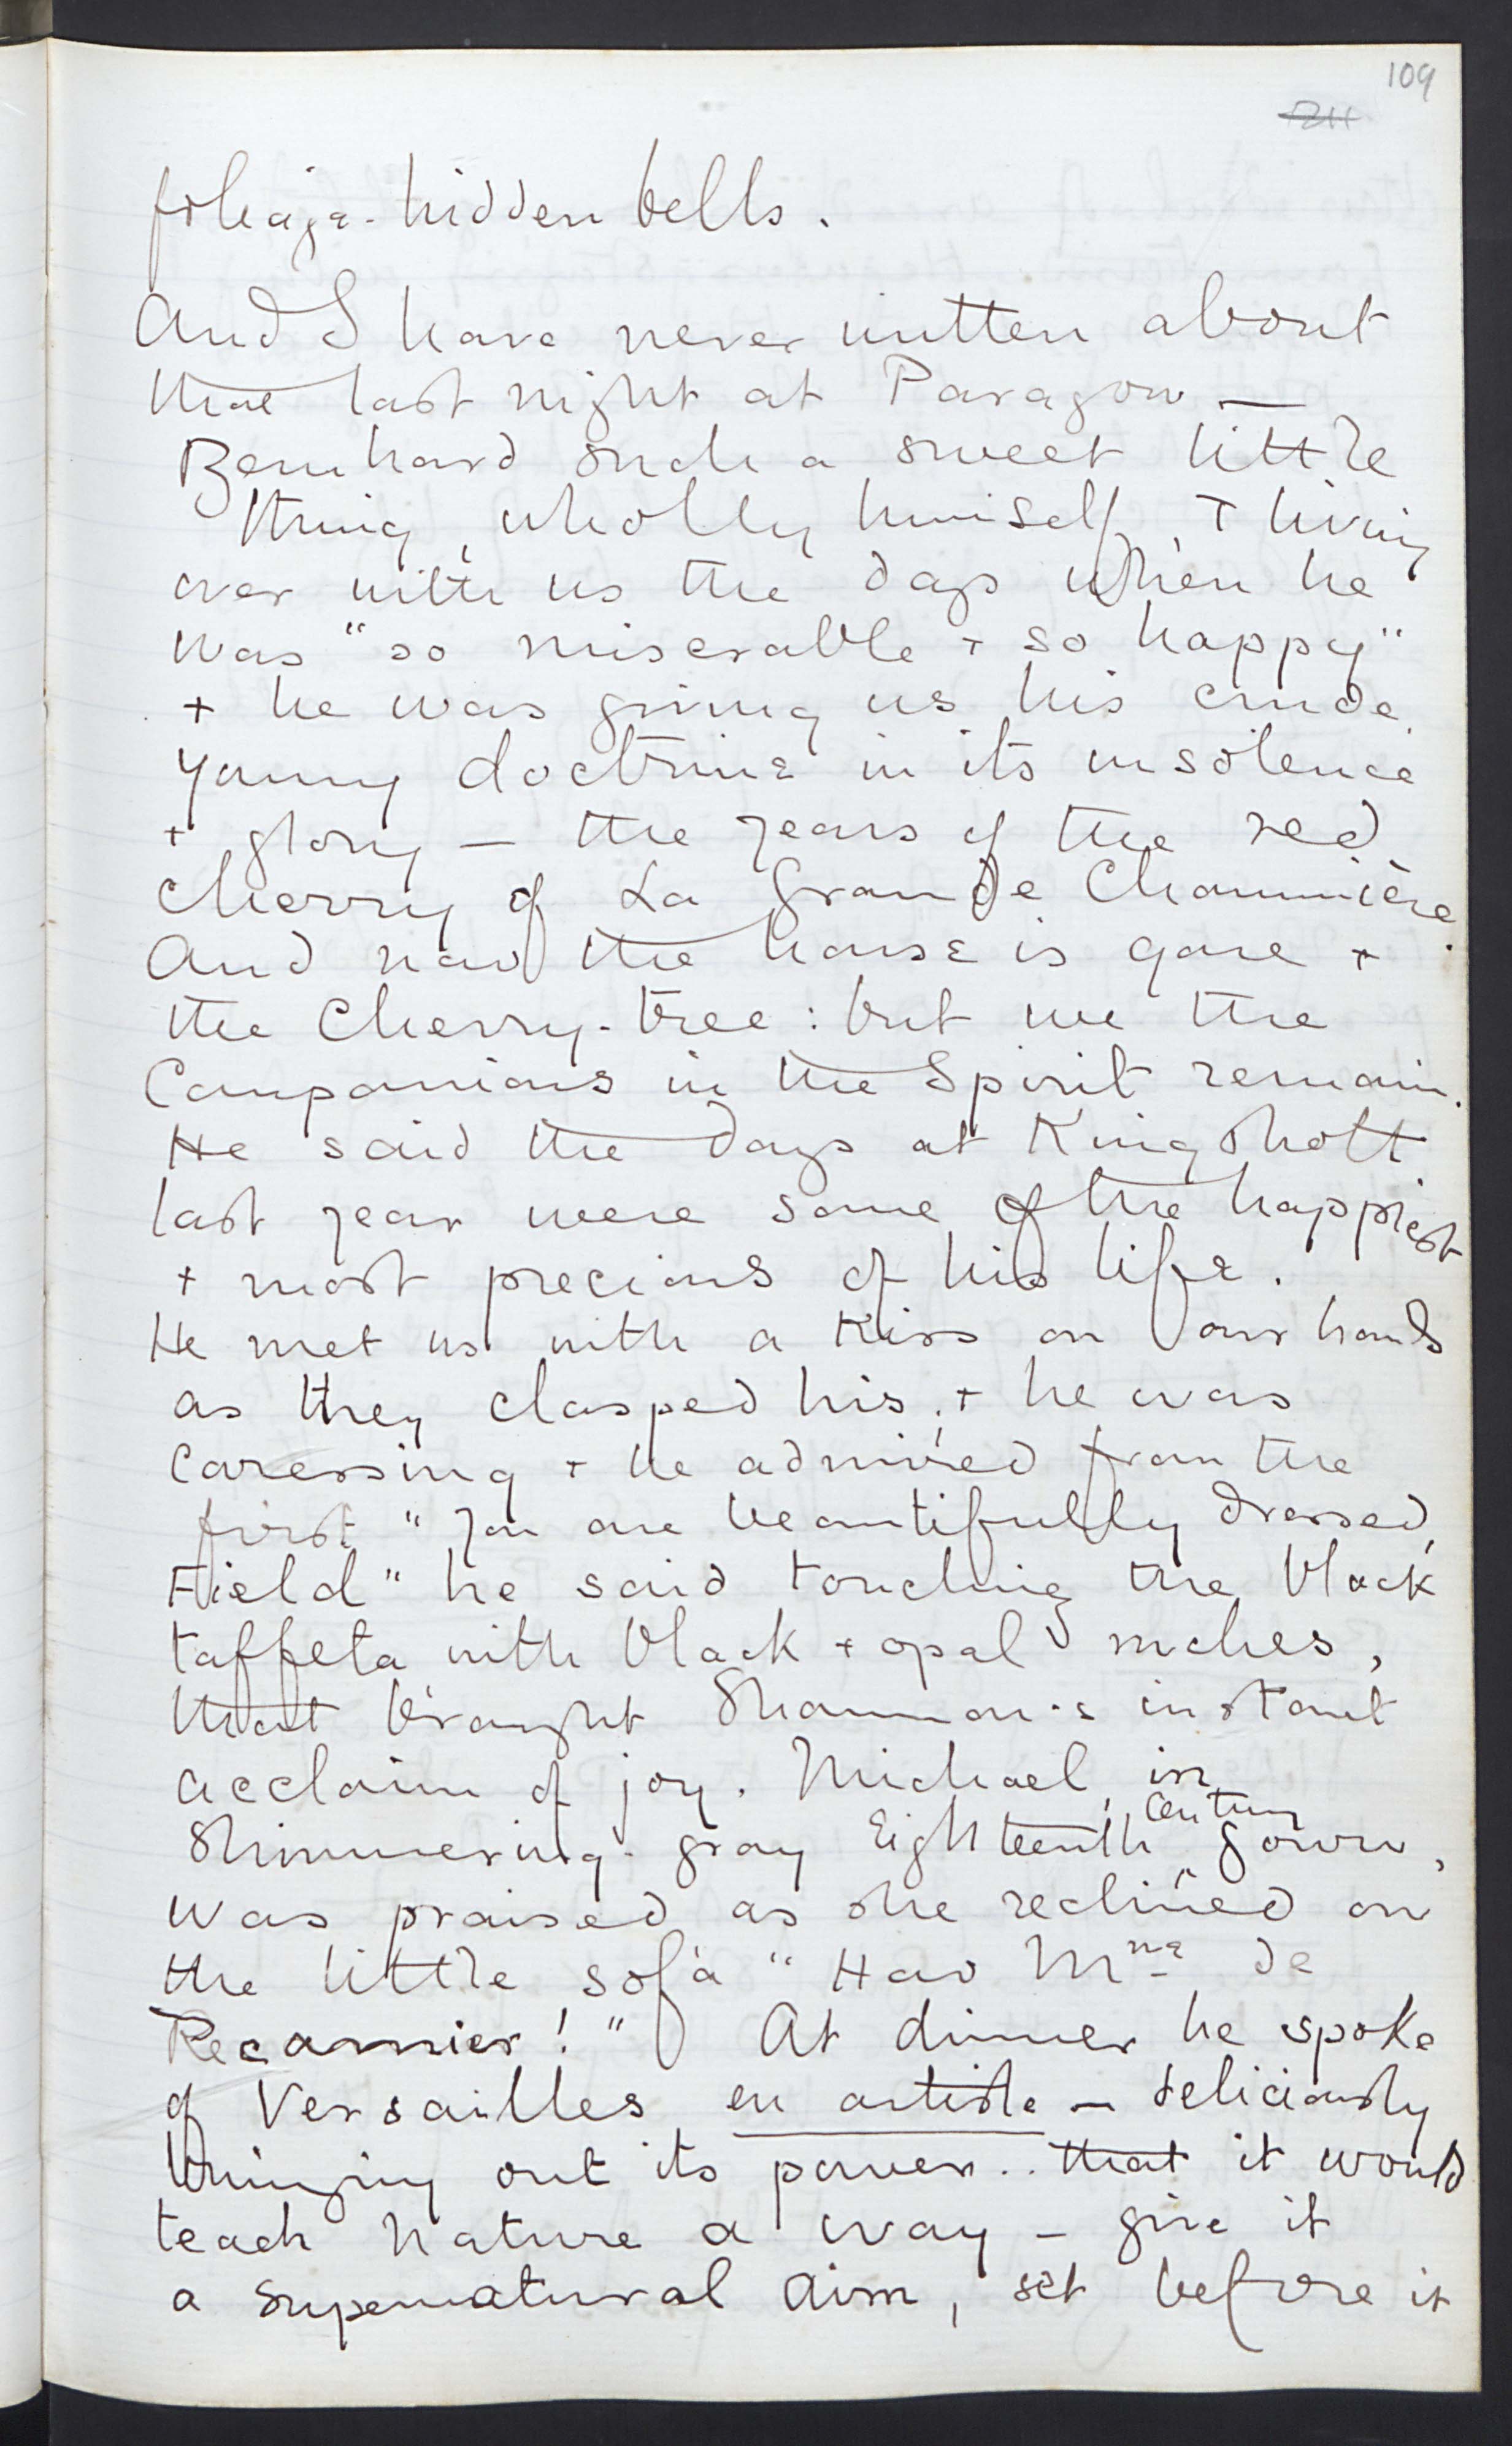 109
foliage-hidden bells.
And I have never written about
that last night at Paragon —
Bernhard such a sweet little
thing, wholly himself, + living
over with us the days when he
was "so miserable + so happy"
+ he was giving us his crude
young doctrine in its insolence
+ glory — the years of the red
cherry of La Grande Chaumière.
And now the house is gone +
the Cherry-tree: but we the
Companions in the Spirit remain.
He said the days at Kingsholt
last year were some of the happiest
+ most precious of his life.
He met us with a Kiss on our hands
as they clasped his, + he was
caressing + he admired from the
first "You are beautifully dressed,
Field" he said touching the black
taffeta with black + opal ruches,
that brought Shannon's instant
acclaim of joy. Michael, in
Shimmering-gray Eighteenth Century gown,
was praised as she reclined on
the little sofa "How Mme de
Recamier!" At dinner he spoke
of Versailles en artiste — deliciously
bringing out its power.. that it would
teach Nature a way — give it
a Supernatural Aim, set before it